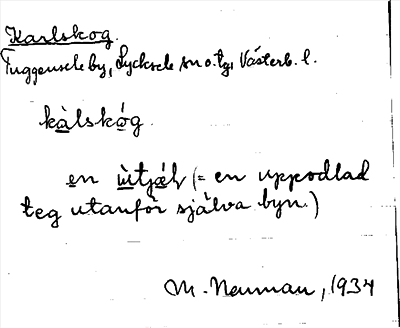 Karlskog.
Tuggensele by, Lycksele sn o. tg, Västerb. l.
kàlskóg
en ùtjæ̀ (= en uppodlad
teg utanför själva byn.)
M. Neuman, 1934